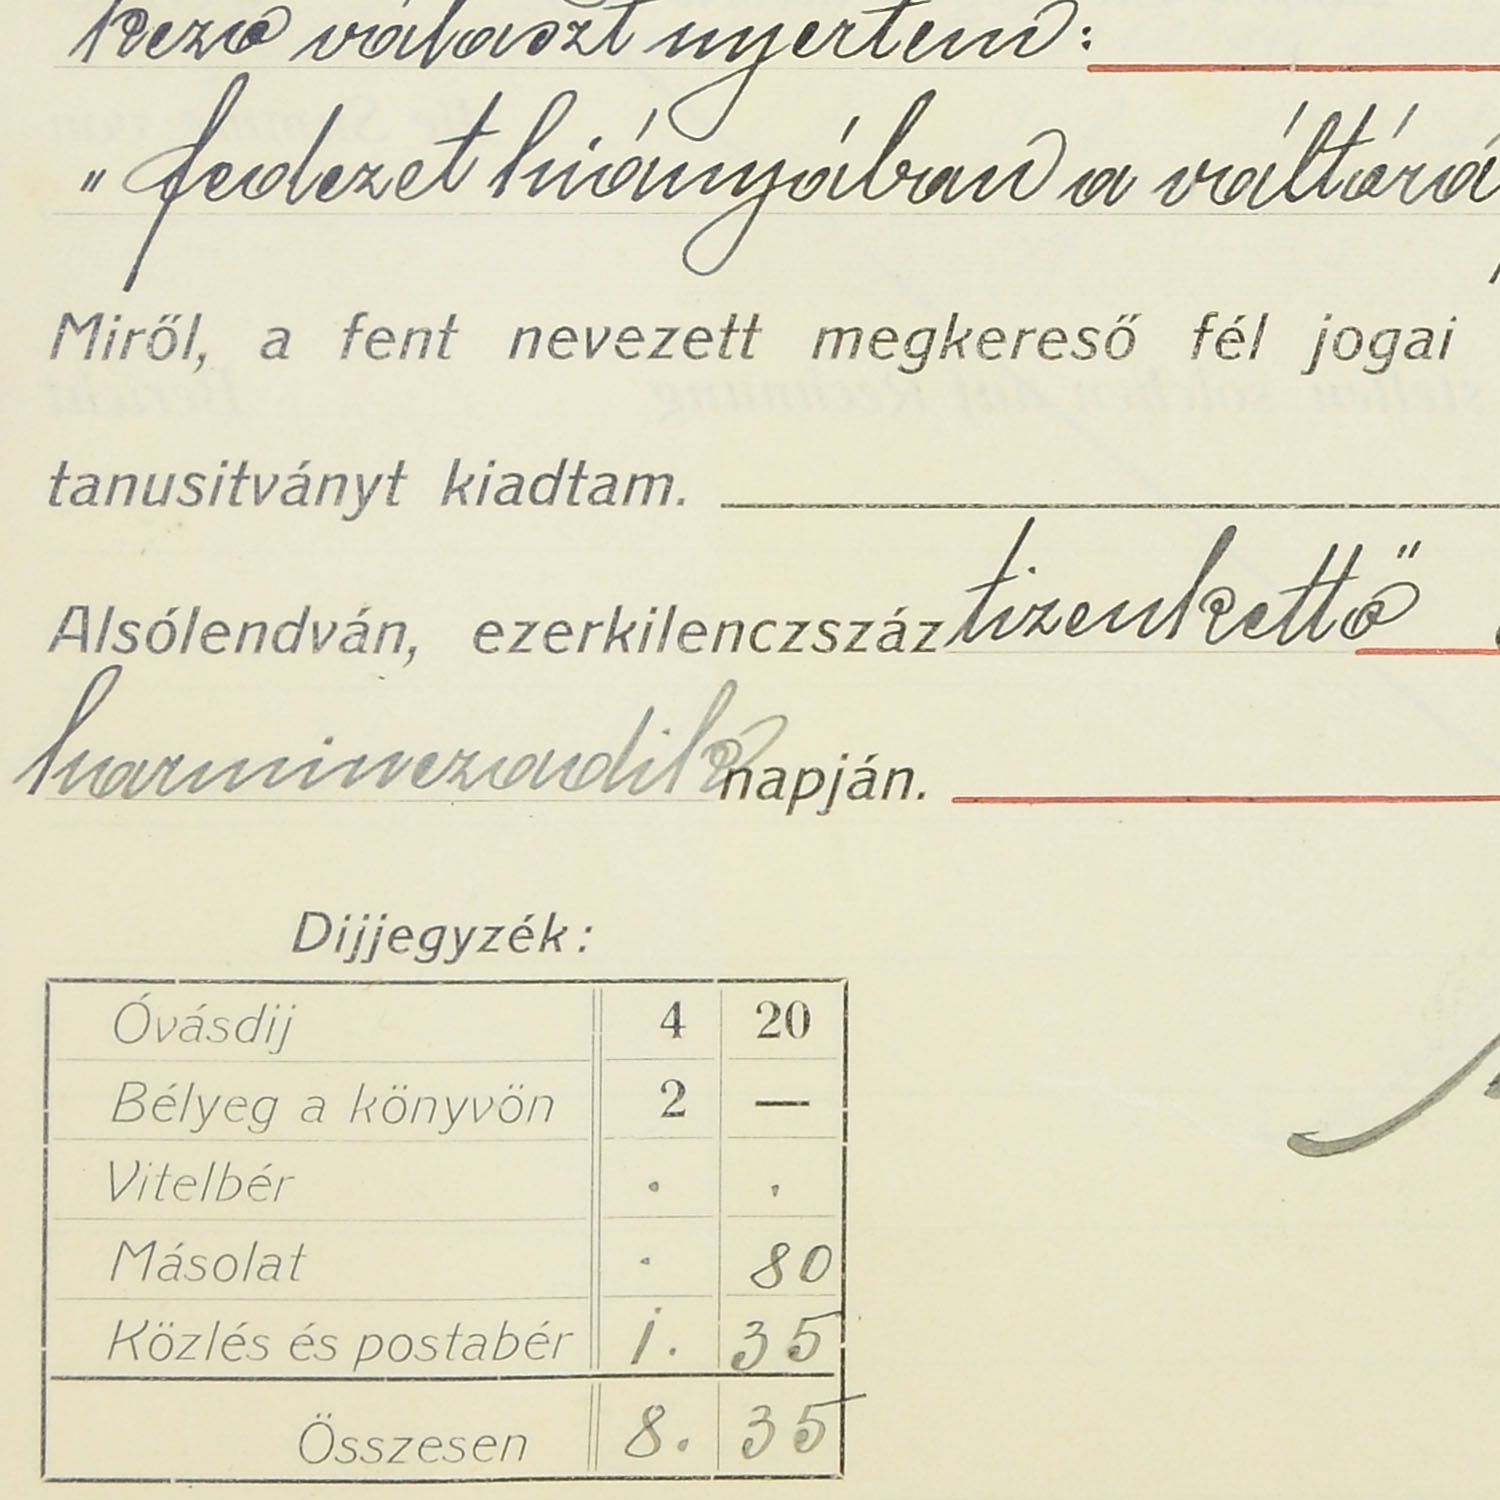 kező választ nyertem:
„fedezet hiányában a váltó
Miről, a fent nevezett megkereső fél jogai
tanusitványt kiadtam.
Alsólendván, ezerkilenczszáz tizenkettő
harminczadik napján.
Dijjegyzék:
Óvásdij 4 20
Bélyeg a könyvön 2 —
Vitelbér . .
Másolat . 80
Közlés és postabér 1. 35
Összesen 8. 35